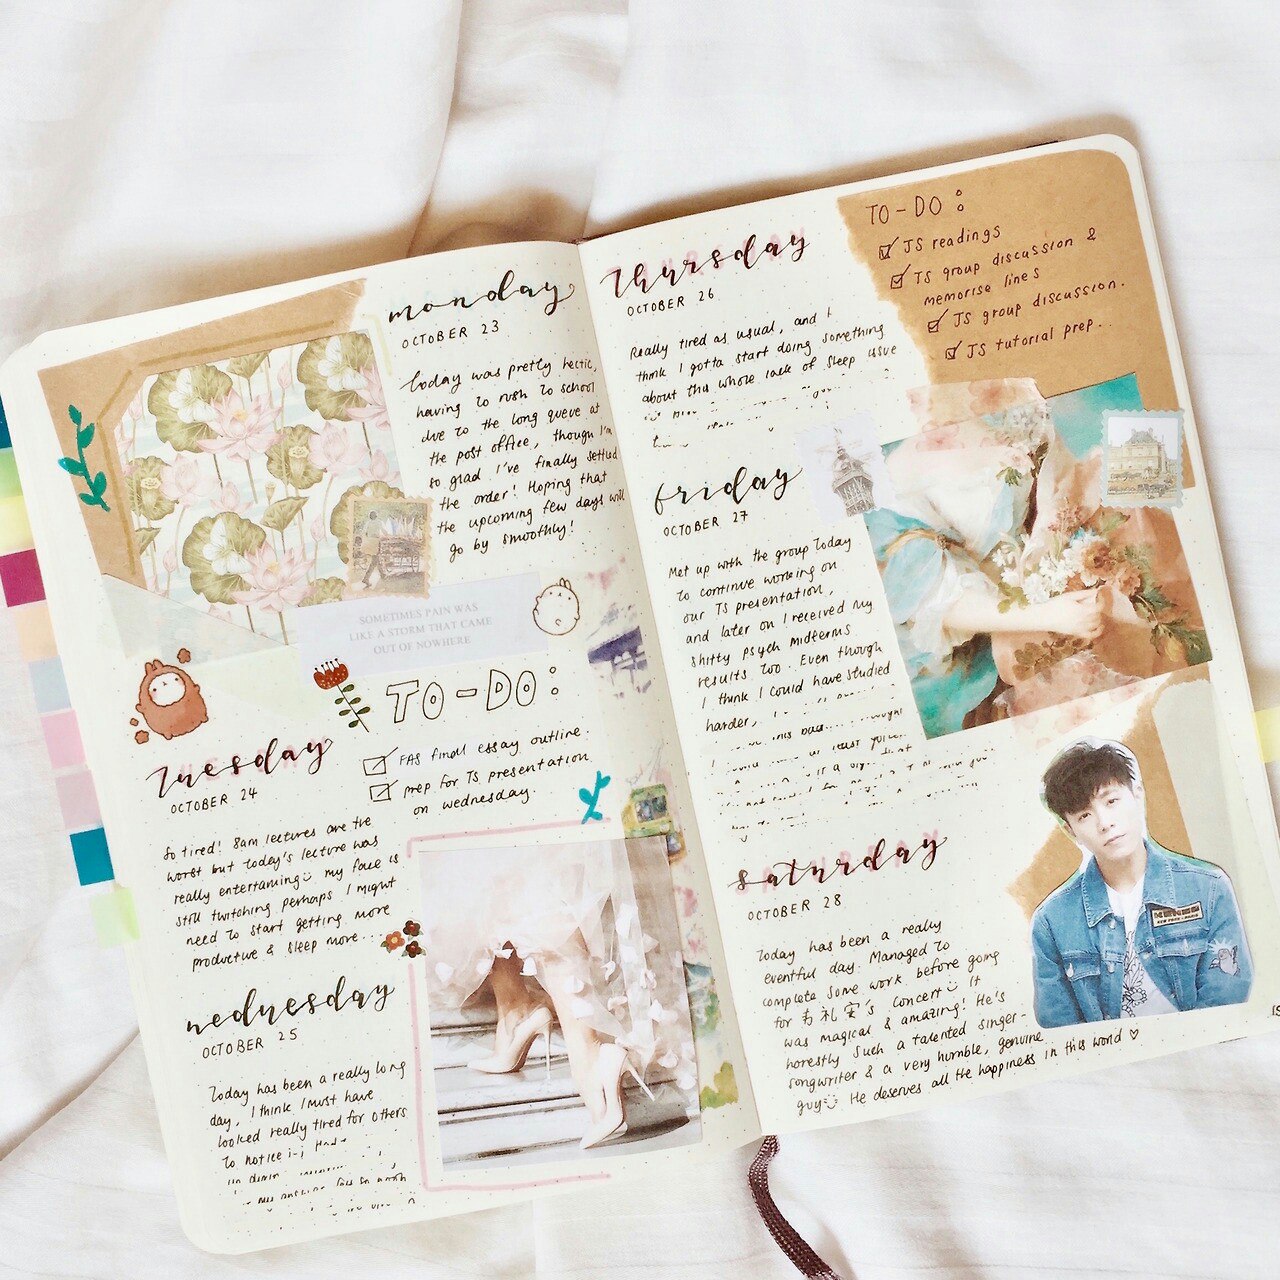 monday
OCTOBER 23
Today was pretty hectic,
having to rush to school
due to the long queue at
the post office, though I'm
so glad I've finally settled
the order! Hoping that
the upcoming few days will
go by smoothly!
SOMETIMES PAIN WAS
LIKE A STORM THAT CAME
OUT OF NOWHERE
TO-DO:
FAS final essay outline.
prep for TS presentation
on wednesday.
Tuesday
OCTOBER 24
So tired! 8am lectures are the
worst but today's lecture was
really entertaining my face is
still twitching perhaps I might
need to start getting more
productive & sleep more...
wednesday
OCTOBER 25
Today has been a really long
day, I think I must have
looked really tired for others
to notice
Thursday
OCTOBER 26
Really tired as usual, and I
think I gotta start doing something
about this whole lack of sleep issue
TO-DO:
JS readings
TS group discussion &
memorise lines
JS group discussion.
JS tutorial prep..
friday
OCTOBER 27
Met up with the group today
to continue working on
our TS presentation,
and later on I received my
shitty psych midterms
results too. Even though
I think I could have studied
harder,
saturday
OCTOBER 28
Today has been a really
eventful day. Managed to
complete some work before going
for 韦礼安's concert It
was magical & amazing! He's
honestly such a talented singer-
songwriter & a very humble, genuine
guy He deserves all the happiness in this world ♡
KENZO
NEW YORK - PARIS